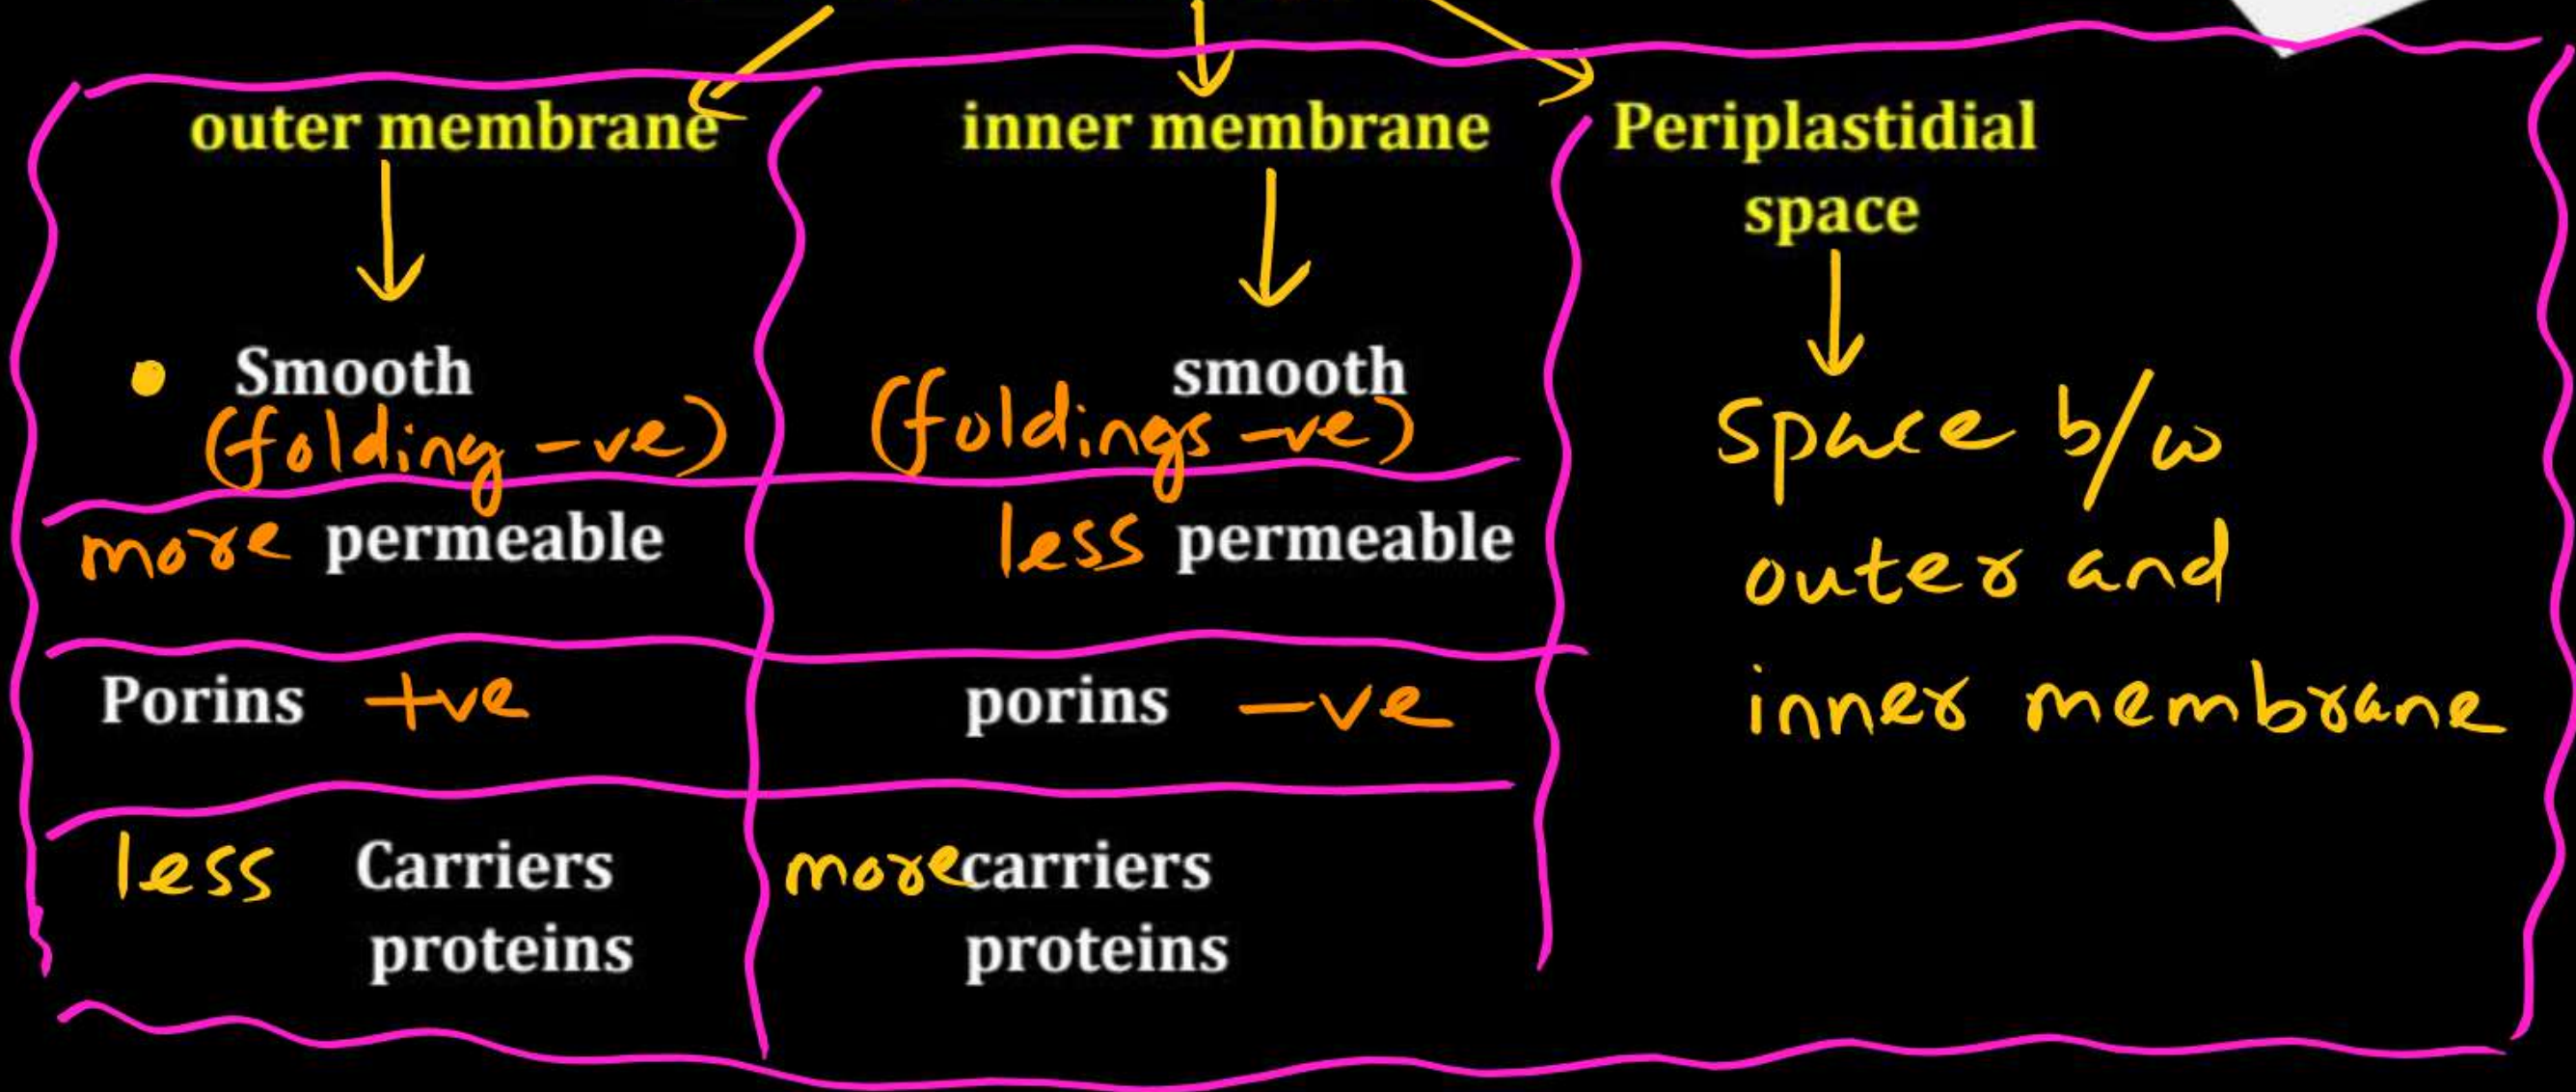 outer membrane
inner membrane
Periplastidial
space
• Smooth
(folding -ve)
smooth
(foldings -ve)
space b/w
outer and
inner membrane
more permeable
less permeable
Porins +ve
porins -ve
less Carriers
proteins
more carriers
proteins